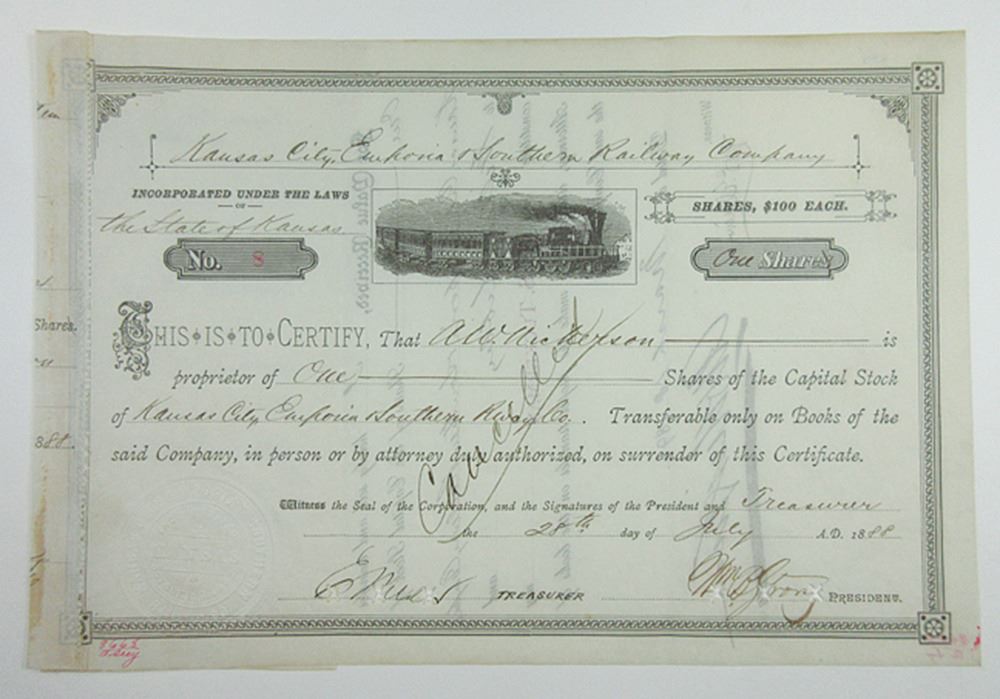 Kansas City, Emporia & Southern Railway Company
INCORPORATED UNDER THE LAWS
OF
the State of Kansas
SHARES, $100 EACH.
No. 8
One Shares
THIS IS TO CERTIFY, That A.W. Nickerson is
proprietor of One Shares of the Capital Stock
of Kansas City Emporia & Southern Rway Co. . Transferable only on Books of the
said Company, in person or by attorney duly authorized, on surrender of this Certificate.
Cancelled
Witness the Seal of the Corporation, and the Signatures of the President and Treasurer
the 28th day of July A.D. 1888
TREASURER
PRESIDENT.
Shares.
1888